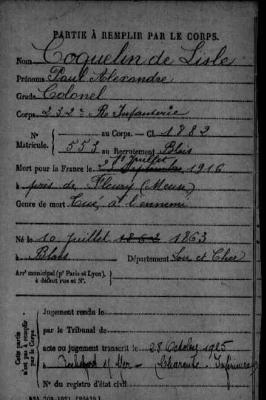 PARTIE À REMPLIR PAR LE CORPS.
Nom Coquelin de Lisle
Prénoms Paul Alexandre
Grade Colonel
Corps 232e Rt Infanterie
N° au Corps. — Cl. 1882
Matricule. 553 au Recrutement Blois
Mort pour la France le 21 Juillet Septembre 1916
à près de Fleury (Meuse)
Genre de mort Tué à l'ennemi
Né le 10 Juillet 1862 1863
à Blois Département Loir et Cher
Arrt municipal (pr Paris et Lyon),
à défaut rue et N°.
Cette partie n'est pas à remplir par le Corps.
Jugement rendu le
par le Tribunal de
acte ou jugement transcrit le 28 Octobre 1925
à Rochefort s/ Mer — Charente Inférieure
N° du registre d'état civil